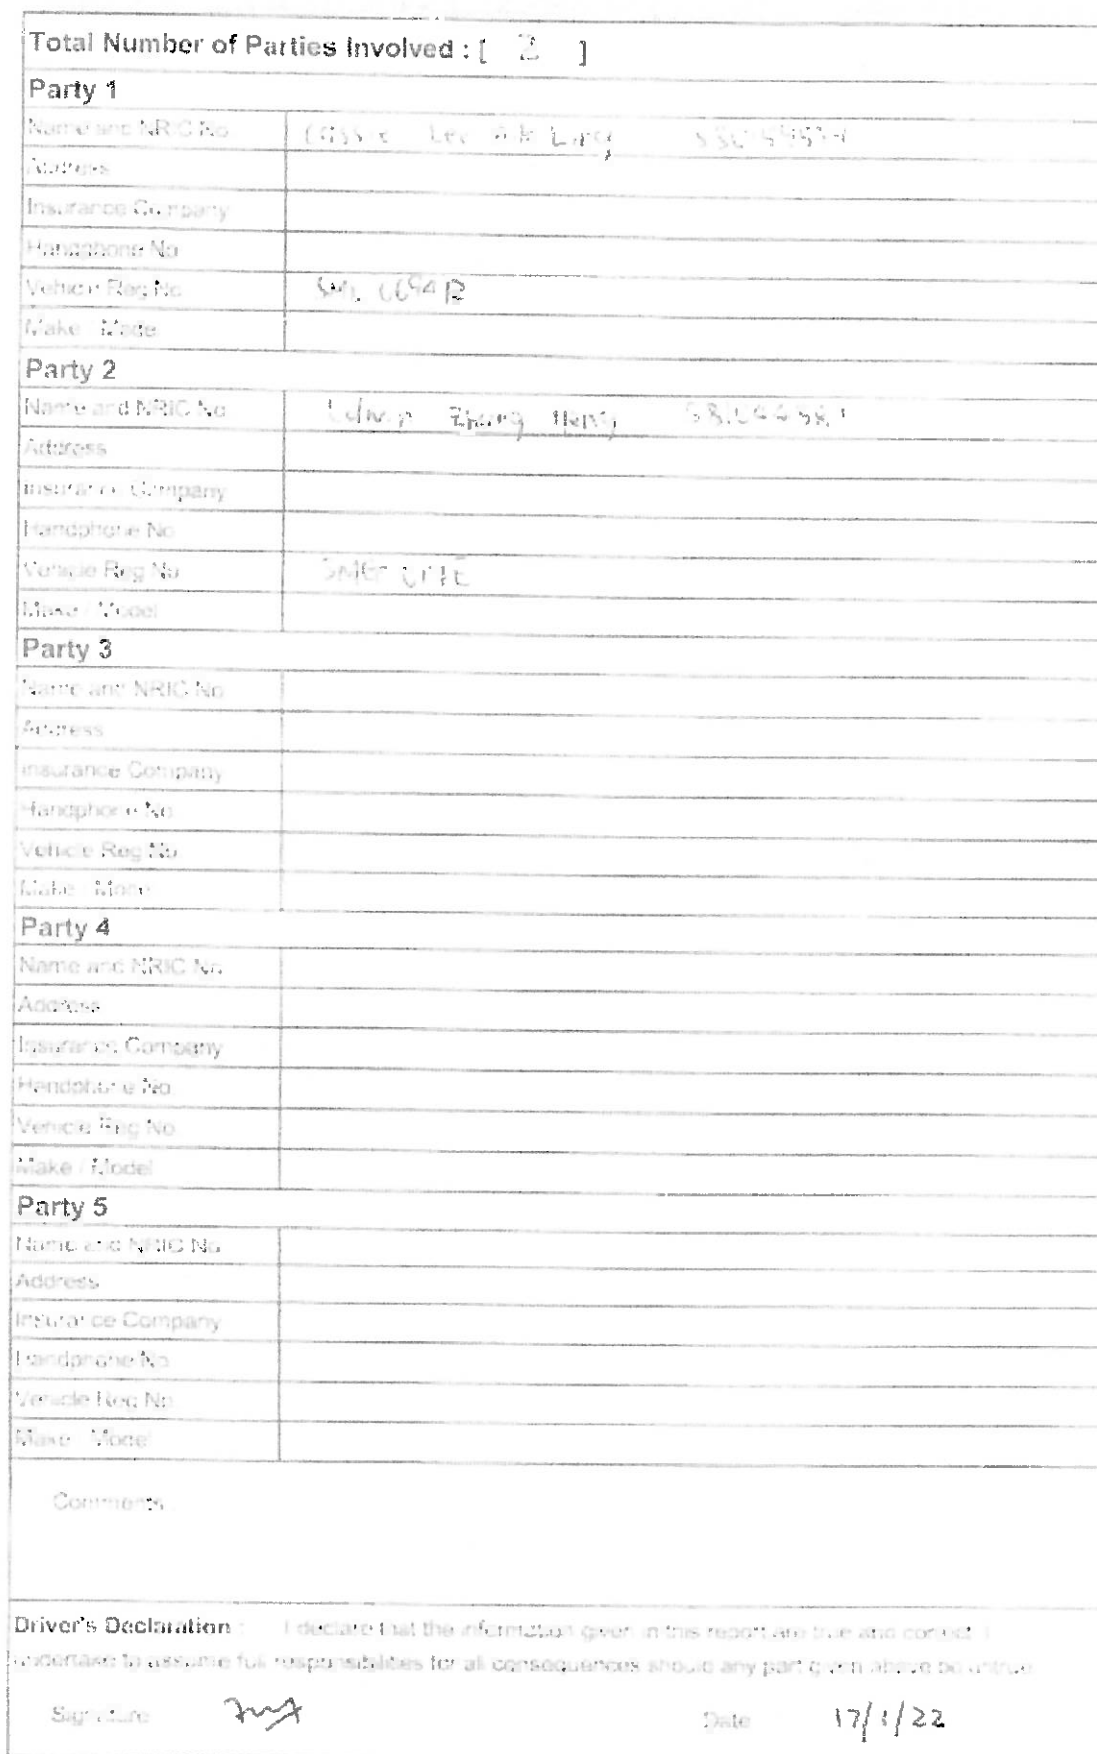 Total Number of Parties Involved : [ 2 ]
Party 1
Name and NRIC No
Address
Insurance Company
Handphone No
Vehicle Reg No
Make / Model
Party 2
Name and NRIC No Edwin Zhang
Address
Insurance Company
Handphone No
Vehicle Reg No
Make / Model
Party 3
Name and NRIC No
Address
Insurance Company
Handphone No
Vehicle Reg No
Make / Model
Party 4
Name and NRIC No
Address
Insurance Company
Handphone No
Vehicle Reg No
Make / Model
Party 5
Name and NRIC No
Address
Insurance Company
Handphone No
Vehicle Reg No
Make / Model
Comments
Driver's Declaration : I declare that the information given in this report are true and correct. I
undertake to assume full responsibilities for all consequences should any part given above be untrue
Signature Date 17/1/22